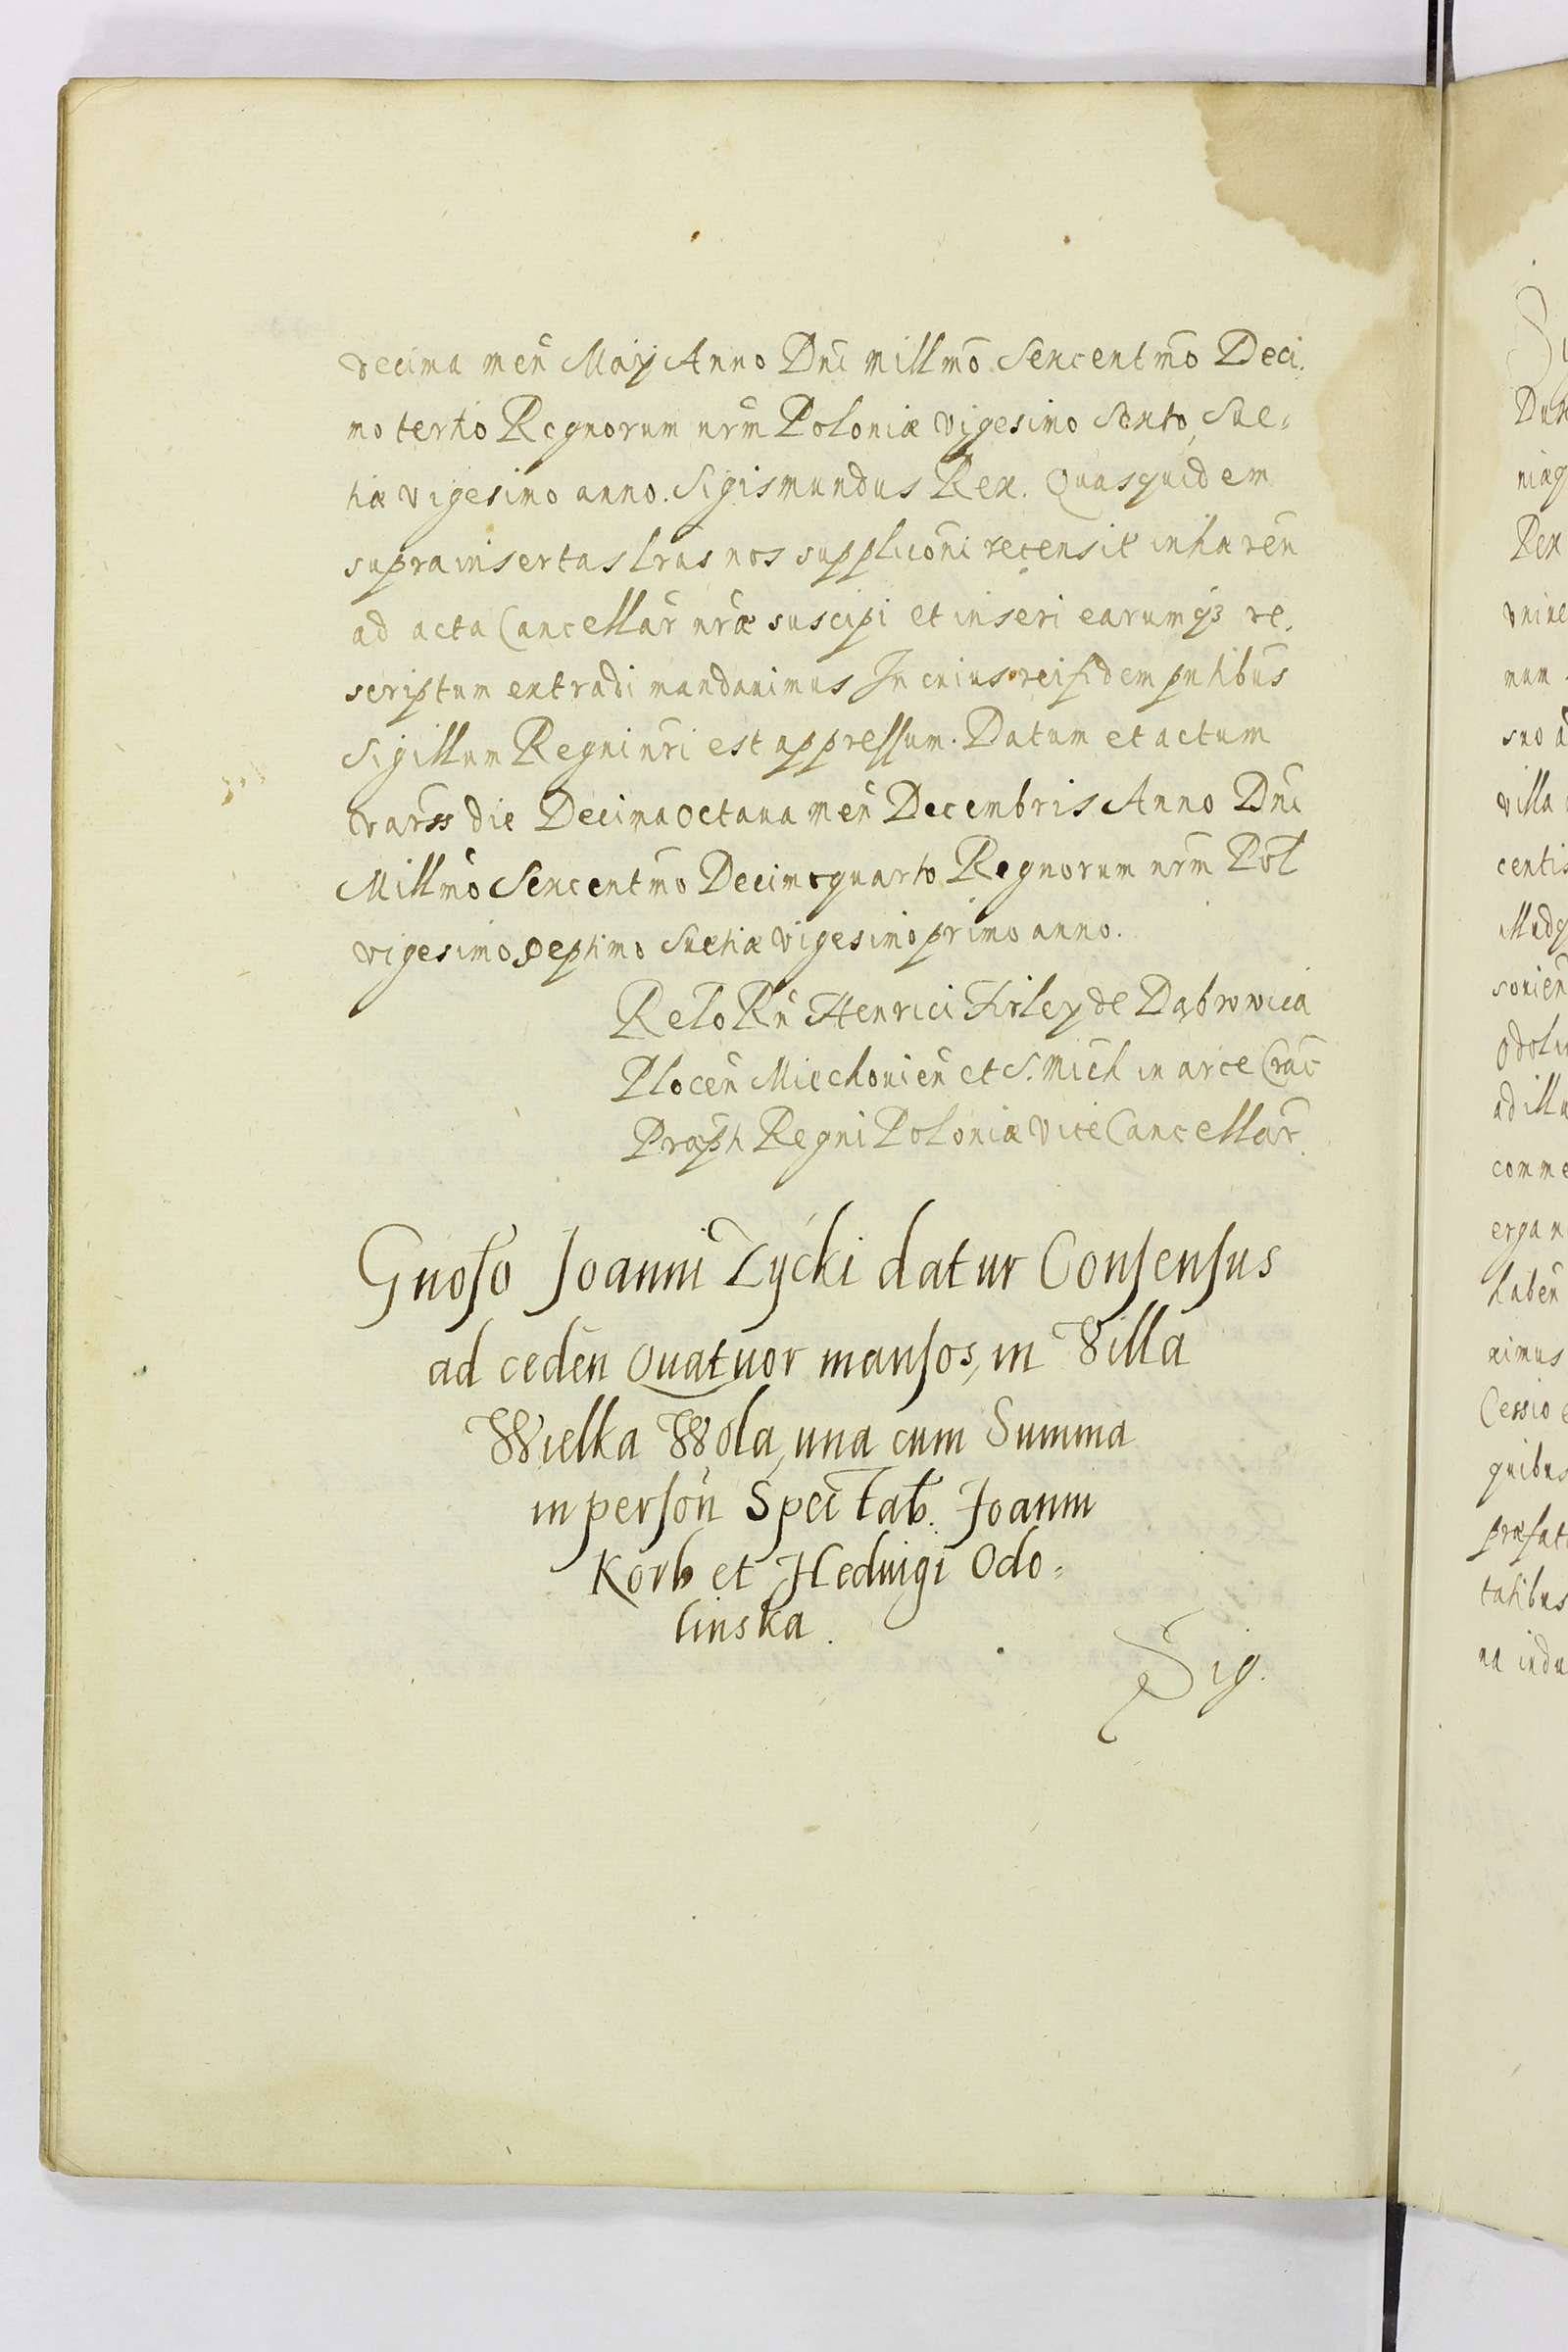 decima meñ Maij Anno Dñi millmo Sexcentmo Deci.
mo tertio Regnorum nrm Poloniæ vigesimo Sexto, Sue=
tiæ vigesimo anno. Sigismundus Rex. Quasquidem
suprainsertas lras nos supplicõni recensit inhæreñ
ad acta Cancellar nræ suscipi et inseri earumqȝ re.
scriptum extradi mandauimus In cuius rei fidem pntibus
Sigillum Regni nri est appressum. Datum et actum
Warss die Decima octaua meñ Decembris Anno Dñi
Millmo Sexcentmo Decimoquarto Regnorum nrm Pol
vigesimo septimo Suetiæ vigesimoprimo anno.
Relo Rñ Henrici Firley de Dąbrowica
Ploceñ Miechovieñ et S. Mich in arce Crac
Præpti Regni Poloniæ ViceCancellar.
Gnoso Joanni Zycki datur Consensus
ad cedeñ Quatuor mansos, in Villa
Wielka Wola, una cum Summa
in persoñ Spectab. Joanni
Korb et Heduigi Odo=
linska.
Sig.
niaq
Rex
num
suo
villa
centis
odoli
ad illu
comme
erga n
habeñ
nimus
Cessio
quibus
præfat
talibus
na indu